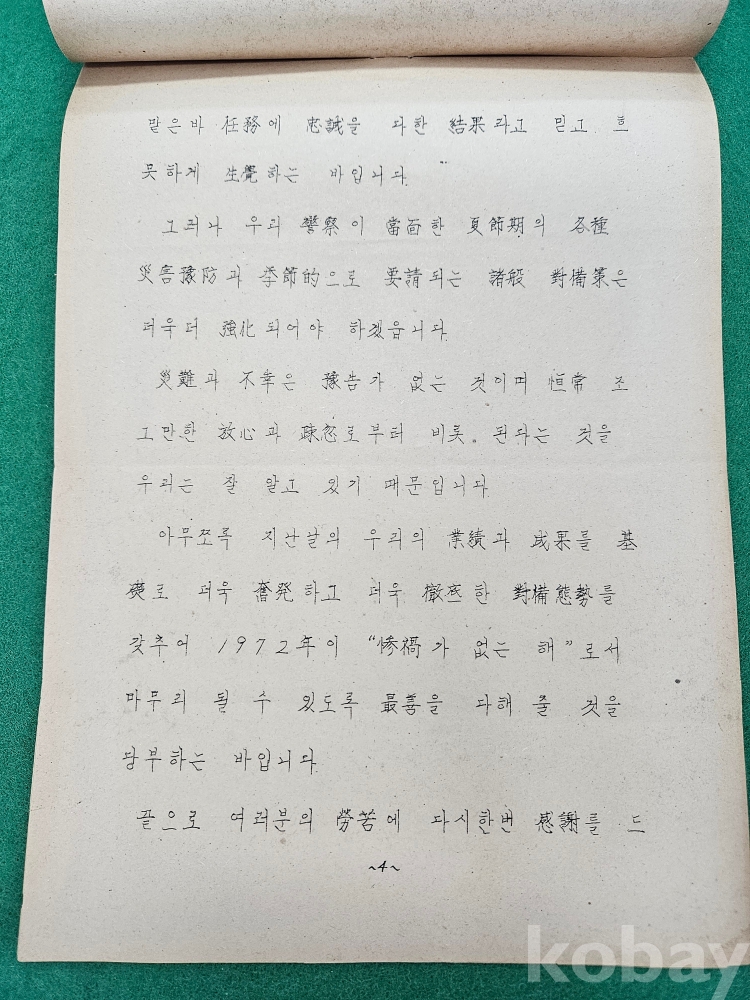 맡은바 任務에 忠誠을 다한 結果라고 믿고 흐
뭇하게 生覺하는 바입니다.
그러나 우리 警察이 當面한 夏節期의 各種
災害豫防과 季節的으로 要請되는 諸般 對備策은
더욱더 強化되어야 하겠읍니다.
災難과 不幸은 豫告가 없는 것이며 恒常 조
그만한 放心과 疎忽로부터 비롯. 된다는 것을
우리는 잘 알고 있기 때문입니다.
아무쪼록 지난날의 우리의 業績과 成果를 基
礎로 더욱 奮発하고 더욱 徹底한 對備態勢를
갖추어 1972年이 "慘禍가 없는 해"로서
마무리 될 수 있도록 最善을 다해 줄 것을
당부하는 바입니다.
끝으로 여러분의 勞苦에 다시한번 感謝를 드
~4~
kobay